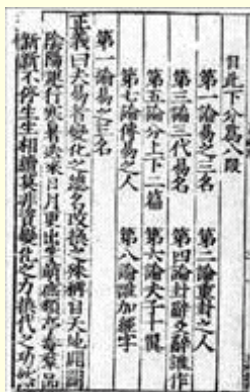 自此下分爲八段
第一論易之三名　第二論重卦之人
第三論三代易名　第四論卦辭爻辭誰作
第五論分上下二篇　第六論夫子十翼
第七論傳易之人　第八論誰加經字
第一論易之三名
正義曰夫易者變化之總名改換之殊稱自天地開闢
陰陽運行寒暑迭來日月更出孚萌庶類亭毒羣品
新新不停生生相續莫非資變化之力換代之功然